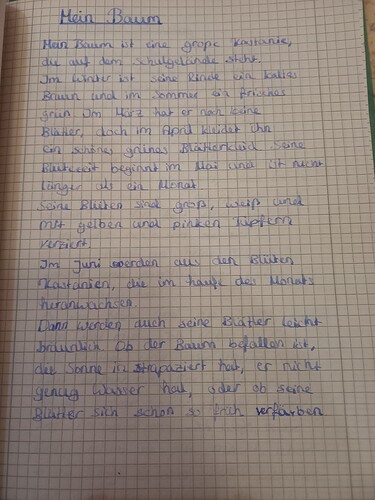 Mein Baum
Mein Baum ist eine große Kastanie,
die auf dem Schulgelände steht.
Im Winter ist seine Rinde ein kahles
Braun und im Sommer ein frisches
grün. Im März hat er noch keine
Blätter, doch im April kleidet ihn
ein schönes grünes Blätterkleid. Seine
Blütezeit beginnt im Mai und ist nicht
länger als ein Monat.
Seine Blüten sind groß, weiß und
mit gelben und pinken Tupfern
verziert.
Im Juni werden aus den Blüten
Kastanien, die im laufe des Monats
heranwachsen.
Dann werden auch seine Blätter leicht
bräunlich. Ob der Baum befallen ist,
die Sonne ihn strapaziert hat, er nicht
genug Wasser hat, oder ob seine
Blätter sich schon so früh verfärben.